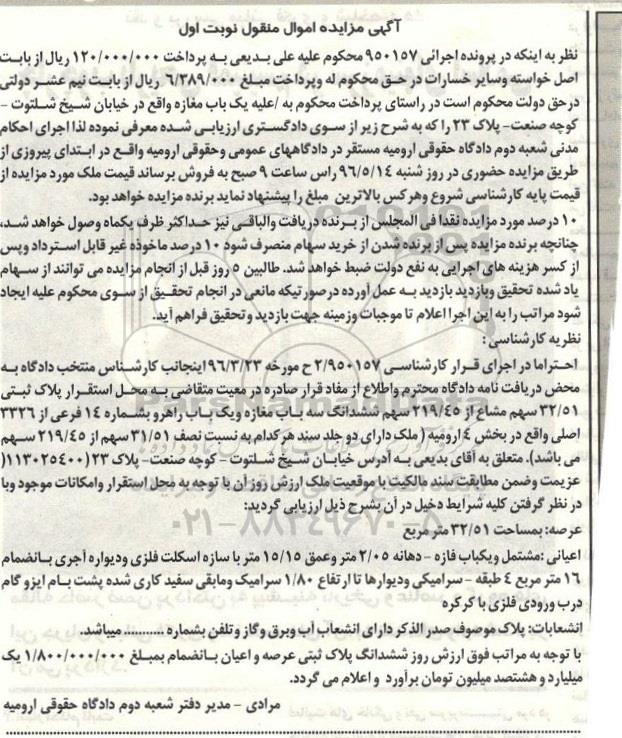 آگهی مزایده اموال منقول نوبت اول
نظر به اینکه در پرونده اجرائی ۹۵۰۱۵۷ محکوم علیه علی بدیعی به پرداخت ۱۲۰/۰۰۰/۰۰۰ ریال از بابت
اصل خواسته وسایر خسارات در حق محکوم له وپرداخت مبلغ ۶/۳۸۹/۰۰۰ ریال از بابت نیم عشر دولتی
در حق دولت محکوم است در راستای پرداخت محکوم به /علیه یک باب مغازه واقع در خیابان شیخ شلتوت -
کوچه صنعت- پلاک ۲۳ را که به شرح زیر از سوی دادگستری ارزیابی شده معرفی نموده لذا اجرای احکام
مدنی شعبه دوم دادگاه حقوقی ارومیه مستقر در دادگاههای عمومی وحقوقی ارومیه واقع در ابتدای پیروزی از
طریق مزایده حضوری در روز شنبه ۹۶/۵/۱۴ راس ساعت ۹ صبح به فروش برساند قیمت ملک مورد مزایده از
قیمت پایه کارشناسی شروع وهرکس بالاترین مبلغ را پیشنهاد نماید برنده مزایده خواهد بود.
۱۰ درصد مورد مزایده نقدا فی المجلس از برنده دریافت والباقی نیز حداکثر ظرف یکماه وصول خواهد شد،
چنانچه برنده مزایده پس از برنده شدن از خرید سهام منصرف شود ۱۰ درصد ماخوذه غیر قابل استرداد وپس
از کسر هزینه های اجرایی به نفع دولت ضبط خواهد شد. طالبین ۵ روز قبل از انجام مزایده می توانند از سهام
یاد شده تحقیق وبازدید بازدید به عمل آورده درصورتیکه مانعی در انجام تحقیق از سوی محکوم علیه ایجاد
شود مراتب را به این اجرا اعلام تا موجبات وزمینه جهت بازدید وتحقیق فراهم آید.
نظریه کارشناسی :
احتراما در اجرای قرار کارشناسی ۲/۹۵۰۱۵۷ ح مورخه ۹۶/۳/۲۳ اینجانب کارشناس منتخب دادگاه به
محض دریافت نامه دادگاه محترم واطلاع از مفاد قرار صادره در معیت متقاضی به محل استقرار پلاک ثبتی
۳۲/۵۱ سهم مشاع از ۲۱۹/۴۵ سهم ششدانگ سه باب مغازه ویک باب راهرو بشماره ۱۴ فرعی از ۳۳۲۶
اصلی واقع در بخش ۴ ارومیه ( ملک دارای دو جلد سند هرکدام به نسبت نصف ۳۱/۵۱ سهم از ۲۱۹/۴۵ سهم
می باشد). متعلق به آقای بدیعی به آدرس خیابان شیخ شلتوت - کوچه صنعت- پلاک ۲۳ (۱۱۳۰۲۵۴۰۰)
عزیمت وضمن مطابقت سند مالکیت با موقعیت ملک ارزش روز آن با توجه به محل استقرار وامکانات موجود وبا
در نظر گرفتن کلیه شرایط دخیل در آن بشرح ذیل ارزیابی گردید:
عرصه: بمساحت ۳۲/۵۱ متر مربع
اعیانی :مشتمل ویکباب فازه - دهانه ۲/۰۵ متر وعمق ۱۵/۱۵ متر با سازه اسکلت فلزی ودیواره آجری بانضمام
۱۶ متر مربع ۴ طبقه - سرامیکی ودیوارها تا ارتفاع ۱/۸۰ سرامیک ومابقی سفید کاری شده پشت بام ایزو گام
درب ورودی فلزی با کرکره
انشعابات: پلاک موصوف صدر الذکر دارای انشعاب آب وبرق وگاز وتلفن بشماره ........... میباشد.
با توجه به مراتب فوق ارزش روز ششدانگ پلاک ثبتی عرصه و اعیان بانضمام بمبلغ ۱/۸۰۰/۰۰۰/۰۰۰ یک
میلیارد و هشتصد میلیون تومان برآورد و اعلام می گردد.
مرادی - مدیر دفتر شعبه دوم دادگاه حقوقی ارومیه